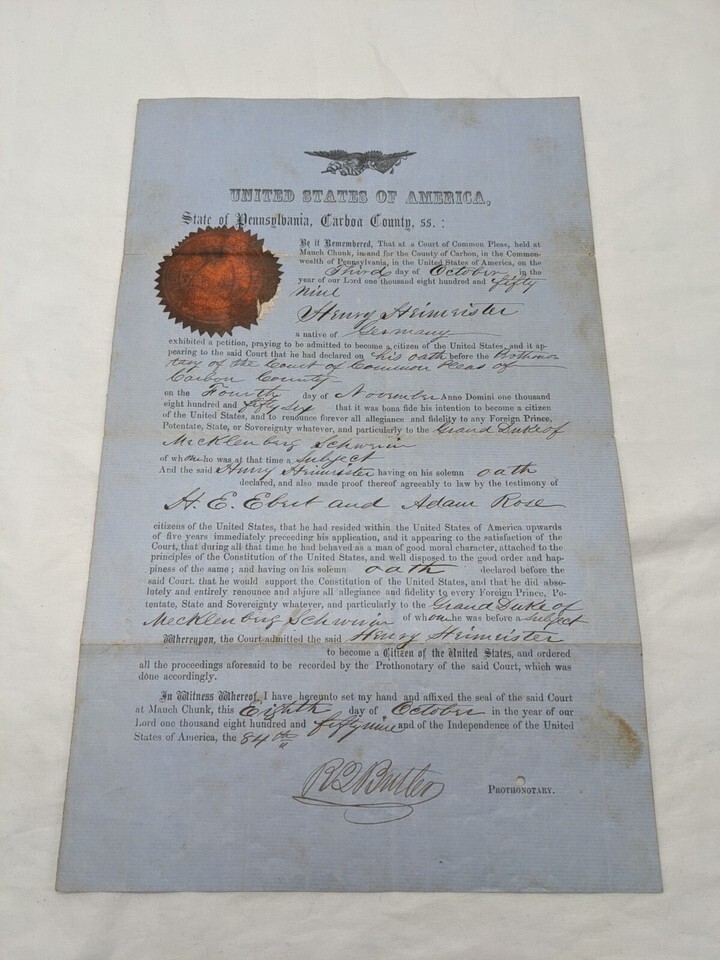 UNITED STATES OF AMERICA,
State of Pennsylvania, Carbon County, ss. :
Be it Remembered, That at a Court of Common Pleas, held at
Mauch Chunk, in and for the County of Carbon, in the Common-
wealth of Pennsylvania, in the United States of America, on the
Third day of October in the
year of our Lord one thousand eight hundred and fifty
nine
Henry Heimeister
a native of Germany
exhibited a petition, praying to be admitted to become a citizen of the United States, and it ap-
pearing to the said Court that he had declared on his oath before the Prothono
tary of the Court of Common Pleas of
Carbon County
on the Fourth day of November Anno Domini one thousand
eight hundred and fifty six that it was bona fide his intention to become a citizen
of the United States, and to renounce forever all allegiance and fidelity to any Foreign Prince,
Potentate, State, or Sovereignty whatever, and particularly to the Grand Duke of
Mecklenberg Schwerin
of whom he was at that time a Subject
And the said Henry Heimeister having on his solemn oath
declared, and also made proof thereof agreeably to law by the testimony of
H. E. Ebert and Adam Rose
citizens of the United States, that he had resided within the United States of America upwards
of five years immediately preceeding his application, and it appearing to the satisfaction of the
Court, that during all that time he had behaved as a man of good moral character, attached to the
principles of the Constitution of the United States, and well disposed to the good order and hap-
piness of the same; and having on his solemn oath declared before the
said Court, that he would support the Constitution of the United States, and that he did abso-
lutely and entirely renounce and abjure all allegiance and fidelity to every Foreign Prince, Po-
tentate, State and Sovereignty whatever, and particularly to the Grand Duke of
Mecklenberg Schwerin of whom he was before a Subject
Whereupon, the Court admitted the said Henry Heimeister
to become a Citizen of the United States, and ordered
all the proceedings aforesaid to be recorded by the Prothonotary of the said Court, which was
done accordingly.
In Witness Whereof, I have hereunto set my hand and affixed the seal of the said Court
at Mauch Chunk, this Eighth day of October in the year of our
Lord one thousand eight hundred and fifty nine and of the Independence of the United
States of America, the 84th
Butler
PROTHONOTARY.